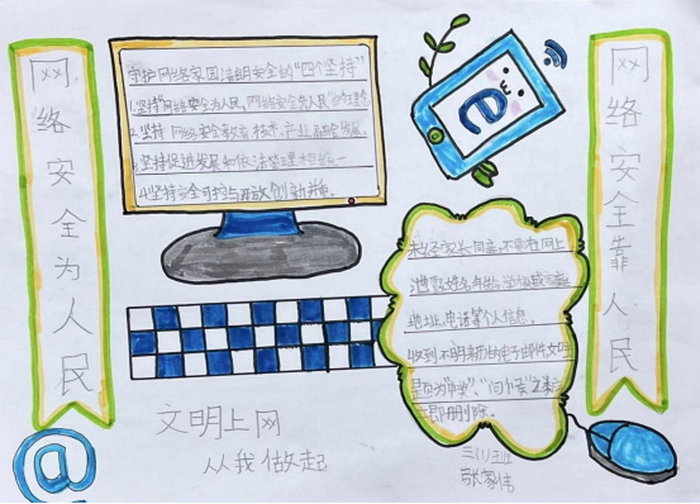 网络安全为人民
守护网络家园清朗安全的“四个坚持”
1.坚持“网络安全为人民，网络安全靠人民”的理念
2.坚持网络安全教育、技术、产业、融合发展。
3.坚持促进发展和依法管理相统一
4.坚持安全可控与开放创新并重。
e
网络安全靠人民
未经家长同意，不要在网上
泄露姓名、年龄、学校或家庭
地址、电话等个人信息。
收到不明来历的电子邮件，如主
题为“中奖”、“问候”之类
立即删除。
文明上网
从我做起
@
三（1）班
张家伟